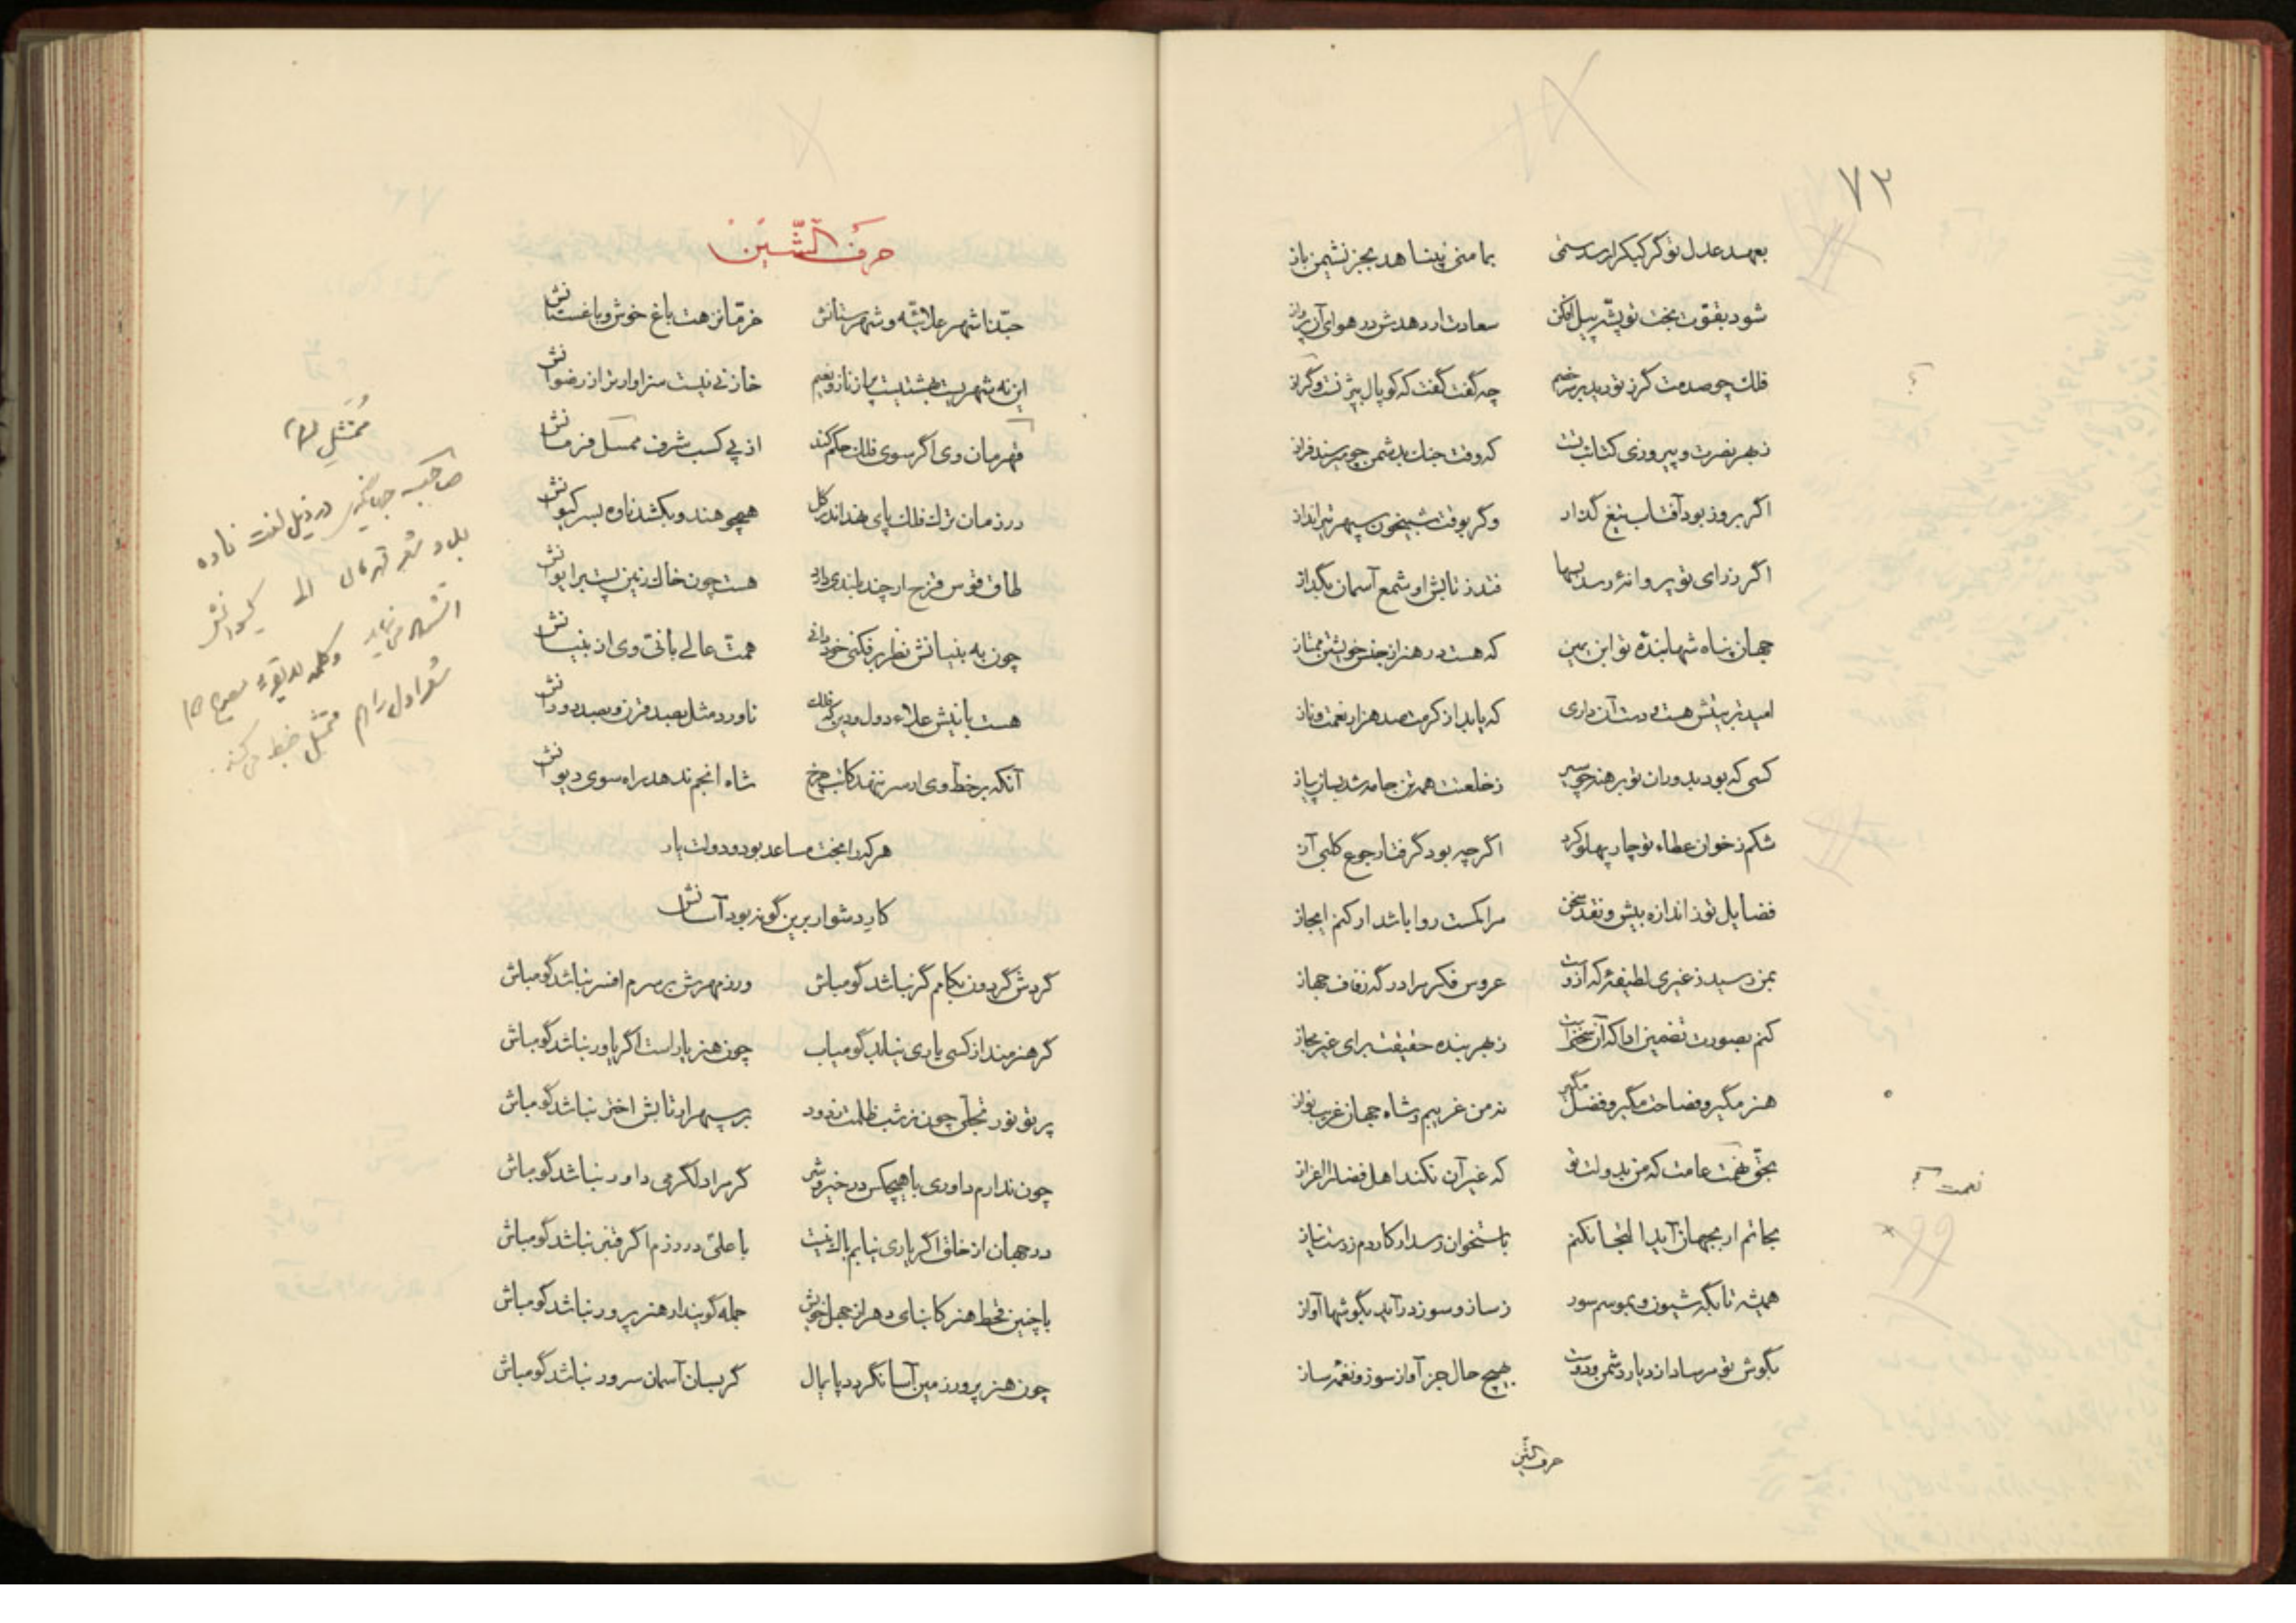 ۷۳
بعهد عدل تو گر کبک را رسد ستمی بمامنی پناهد بجز نشیمن باز
شود بقوت بخت تو پشه پیل افکن سعادت ار دهدش در هوای آن پرواز
فلک چو صدمت گرز تو دید بر خصم چه گفت گفت که کوپال بیژنست و گراز
ز بهر نصرت و پیروزی کتائب تست که وقت جنک بدشمن چو میرسند فراز
اگر بروز بود آفتاب تیغ گذار وگر بوقت شبیخون سپهر تیر انداز
اگر ز رای تو پروانهٔ رسد بسها فتد ز تابش او شمع آسمان بگداز
جهان پناه شها بندهٔ تو ابن یمین که هست در هنر از جنس خویشتن ممتاز
امید تربیتش هست و دست آن داری که یابد از کرمت صد هزار نعمت و ناز
کسی که بود بدوران تو برهنه چو سیر ز خلعتت همه تن جامه شد بسان پیاز
شکم ز خوان عطاء تو چار پهلو کرد اگرچه بود گرفتار جوع کلبی آز
فضایل تو ز اندازه بیش و نقد سخن مرا کمست روا باشد ار کنم ایجاز
بمن رسید ز غیری لطیفهٔ که ازوست عروس فکر مرا در گه زفاف جهاز
کنم بصورت تضمین ادا که آن سخن راست ز بهر بنده حقیقت برای غیر مجاز
هنر مگیر و فصاحت مگیر و فضل مگیر نه من غریبم و شاه جهان غریب نواز
بحق همت عامت که من بدولت تو که غیر آن نکند اهل فضل را اعزاز
نعمت
بجانم ار بجهان آید التجا نکنم باستخوان رسد ار کاردم ز دست نیاز
۹۹
همیشه تا بگه شیون و بموسم سور ز ساز و سوز درآید بگوشها آواز
بگوش تو مرساد از دیار دشمن و دوست بهیچ حال جز آواز سوز و نغمهٔ ساز
حرف الشین
حرف الشین
حبذا شهر علائیه و شهرستانش خرما نزهت باغ خوش و باغستانش
این نه شهریست بهشتیست پر از ناز و نعیم خازنی نیست سزاوارتر از رضوانش
قهرمان وی اگر سوی فلک حکم کند از پی کسب شرف ممسل فرمانش
در زمان ترک فلک پای نهد اندر گل همچو هندو بکشد ناوه بسر کیوانش
طاق قوس قزح ار چند بلندی دارد هست چون خاک زمین پست بر ایوانش
چون به بنیانش نظر برفکنی خود دانی همت عالی بانی وی از بنیانش
هست بانیش علاء دول و دین که فلک ناورد مثل بصد قرن و بصد دورانش
آنکه بر خط وی ار سر ننهد کاتب چرخ شاه انجم ندهد راه سوی دیوانش
هر کرا بخت مساعد بود و دولت یار
کار دشوار برین گونه بود آسانش
گردش گردون بکامم گر نباشد گو مباش ور ز مهرش بر سرم افسر نباشد گو مباش
گر هنرمند از کسی یاری نیابد گو میاب چون هنر یار است اگر یاور نباشد گو مباش
پرتو نور تجلی چون ز شب ظلمت زدود بر سپهر ار تابش اختر نباشد گو مباش
چون ندارم داوری با هیچکس در خیر و شر گر مرا دلگرمی داور نباشد گو مباش
در جهان از خلق اگر یاری نیابم باک نیست با علی در رزم اگر قنبر نباشد گو مباش
با چنین قحط هنر کابنای دهر از جهل خویش جمله گویند ار هنرپرور نباشد گو مباش
چون هنرپرور زمین آسا نگردد پایمال گر بسان آسمان سرور نباشد گو مباش
ممتثل
صاحب جهانگیری در ذیل لغت ناوه
شعر قهرمان الی کیوانش
شعر اول را هم ممتثل ضبط می‌کند.